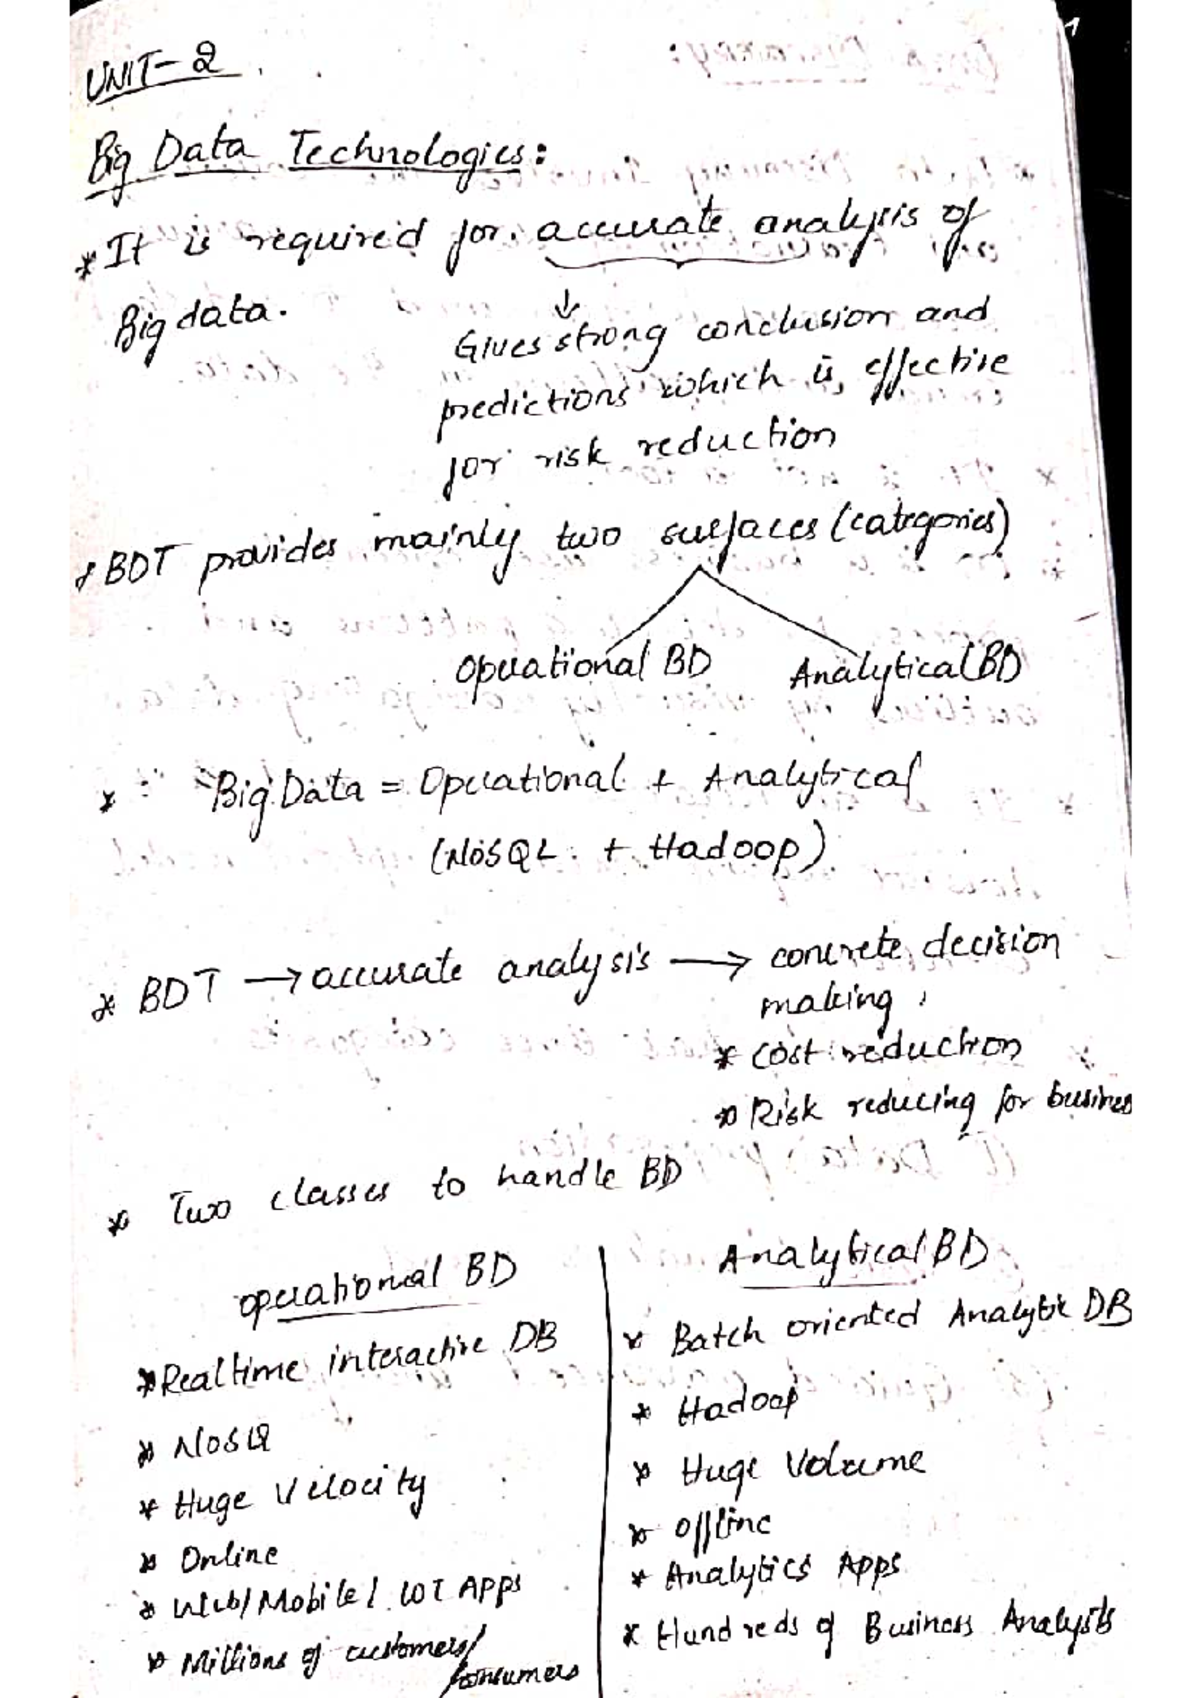 1
UNIT-2.
Big Data Technologies:
* It is required for accurate analysis of
Big data.
↓
Gives strong conclusion and
predictions which is effective
for risk reduction
* BDT provides mainly two surfaces (categories)
Operational BD Analytical BD
* Big Data = Operational + Analytical
(NoSQL + Hadoop)
* BDT → accurate analysis → concrete decision
making
* Cost reduction
* Risk reducing for busines
* Two classes to handle BD
Operational BD
* Realtime interactive DB
* NoSQ
* Huge Velocity
* Online
* Web/Mobile/IOT APPs
* Millions of customers/
consumers
Analytical BD
* Batch oriented Analytic DB
* Hadoop
* Huge Volume
* Offline
* Analytics Apps
* Hundreds of Business Analysts